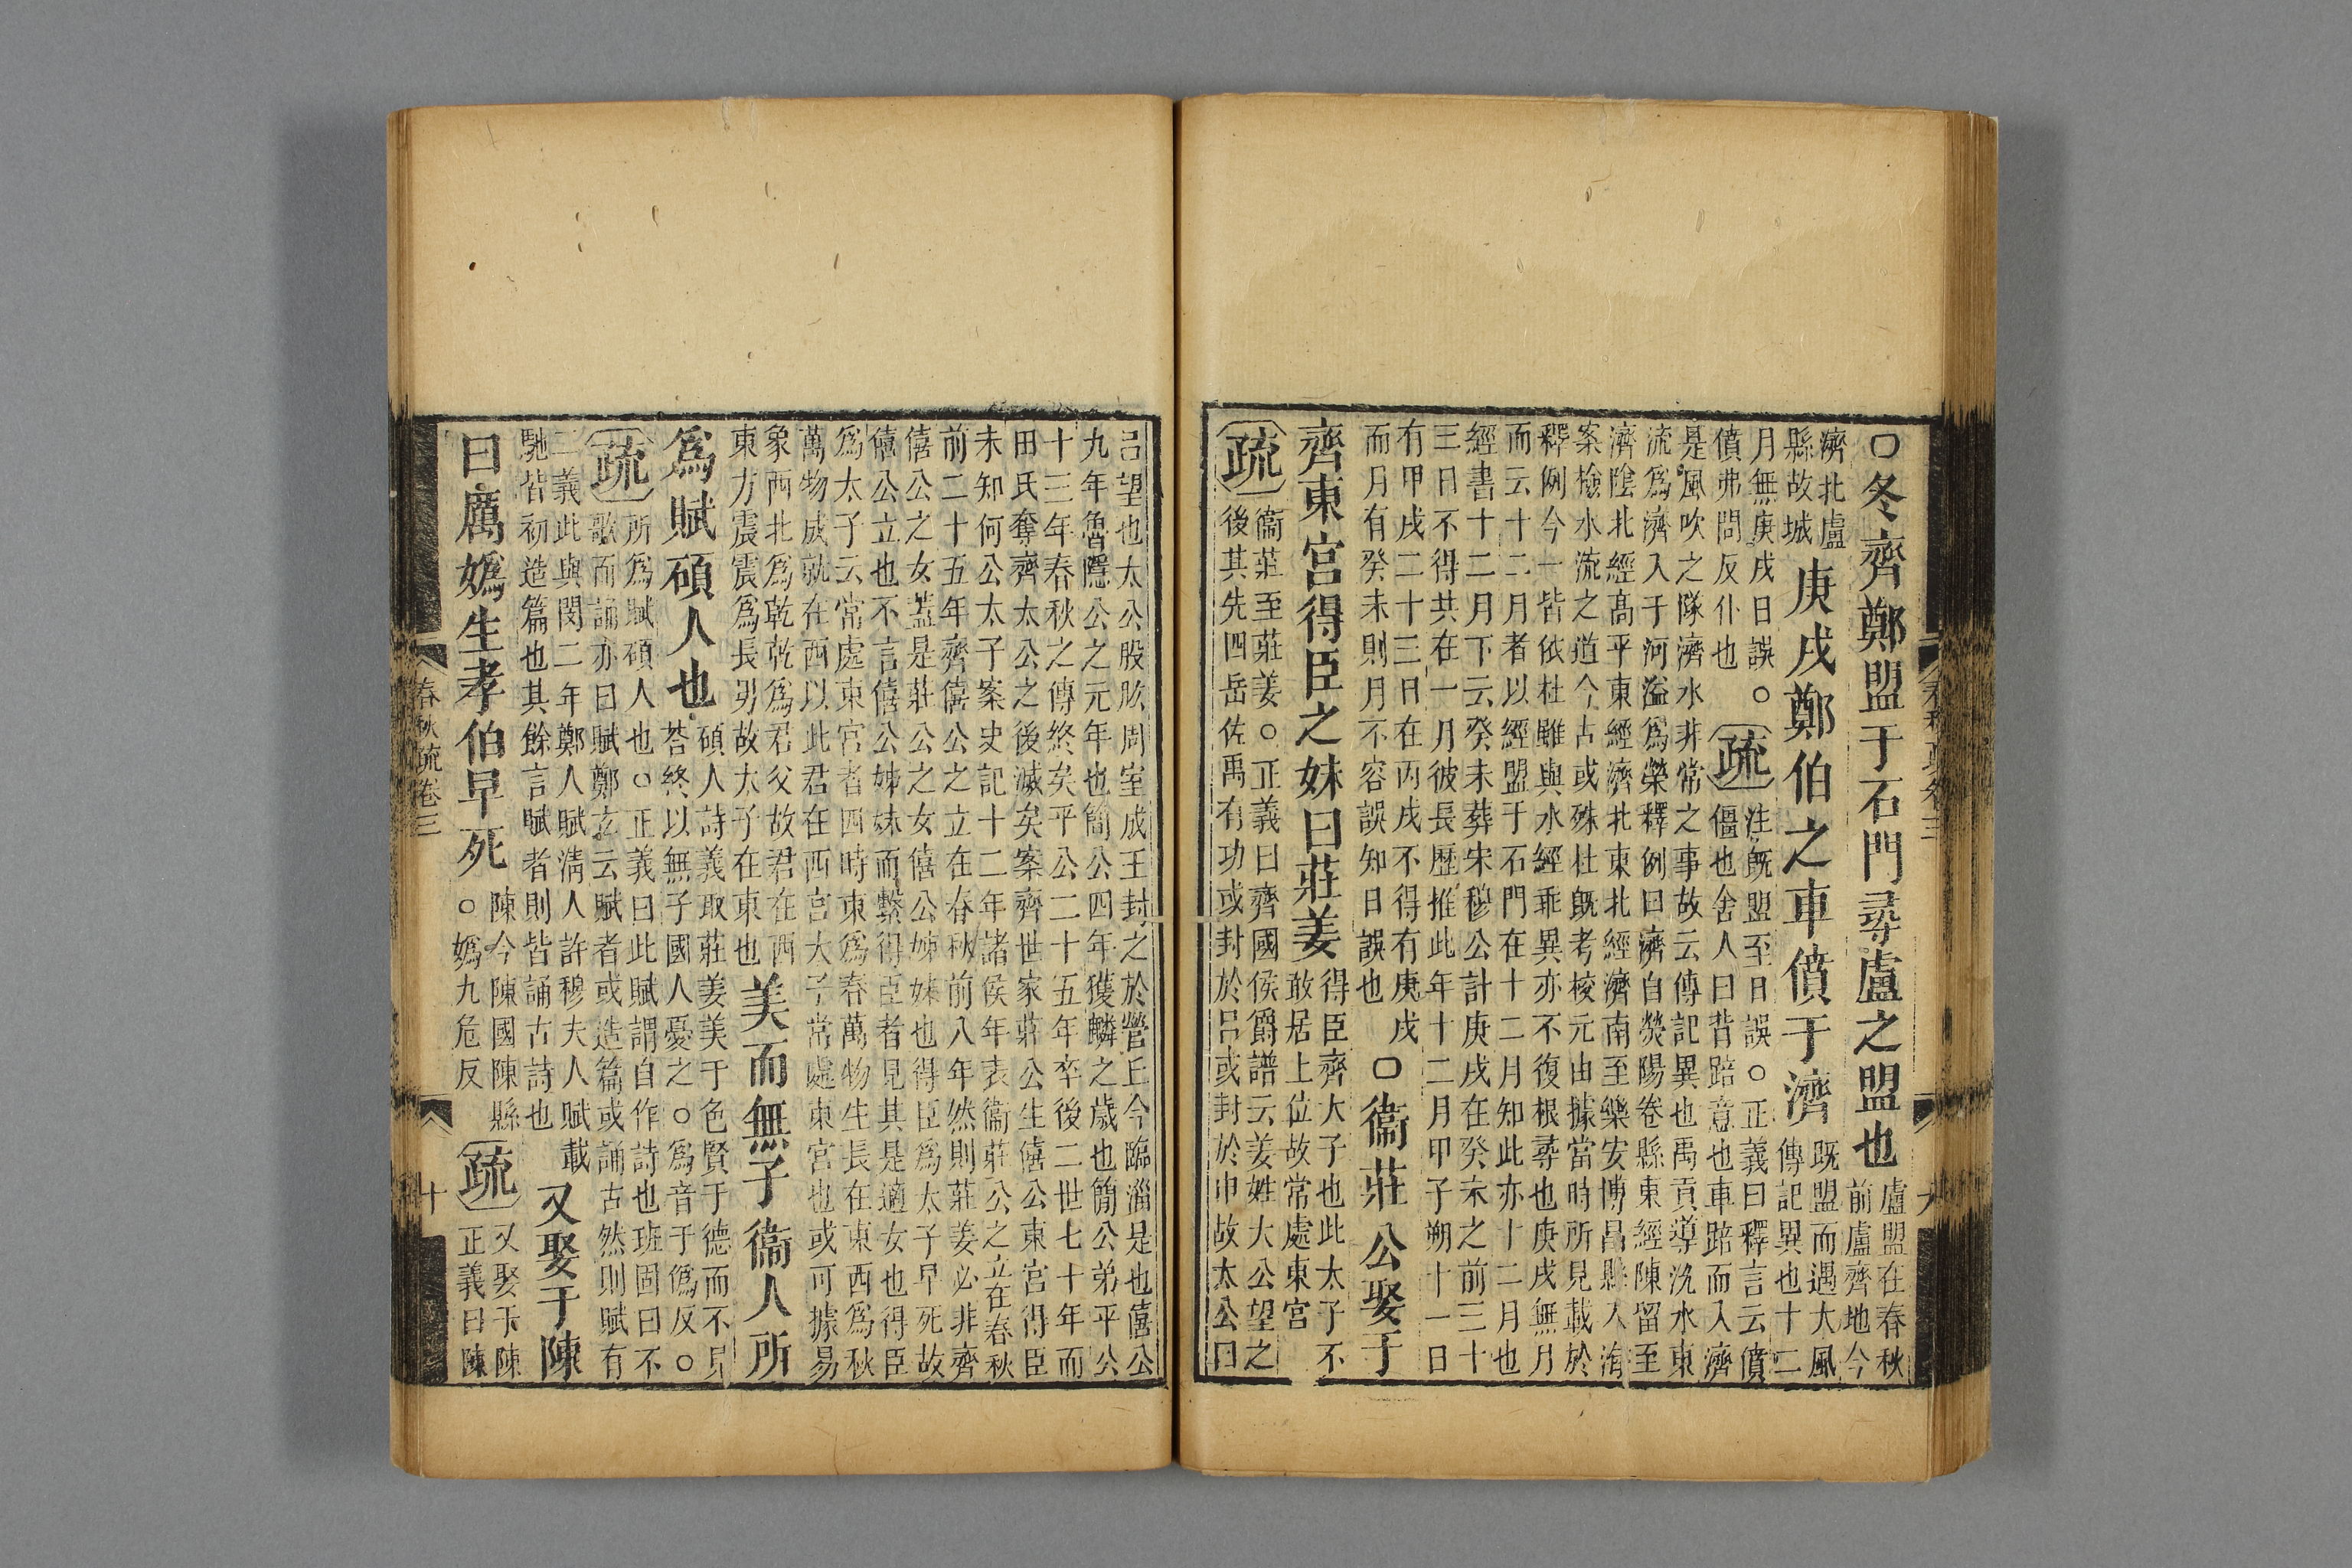 ○冬齊鄭盟于石門尋盧之盟也
盧盟在春秋
前盧齊地今
濟北盧
縣故城
庚戌鄭伯之車僨于濟
既盟而遇大風
傳記異也十二
月無庚戌日誤○
僨弗問反仆也
疏
注既盟至日誤○正義曰釋言云僨
僵也舍人曰背踣意也車踣而入濟
是風吹之隊濟水非常之事故云傳記異也禹貢導沇水東
流爲濟入于河溢爲滎釋例曰濟自熒陽卷縣東經陳留至
濟陰北經高平東經濟北東北經濟南至樂安博昌縣入海
案檢水流之道今古或殊杜既考校元由據當時所見載於
釋例今一皆依杜雖與水經乖異亦不復根尋也庚戌無月
而云十二月者以經盟于石門在十二月知此亦十二月也
經書十二月下云癸未葬宋穆公計庚戌在癸未之前三十
三日不得共在一月彼長歷推此年十二月甲子朔十一日
有甲戌二十三日在丙戌不得有庚戌
而月有癸未則月不容誤知日誤也
○衞莊公娶于
齊東宮得臣之妹曰莊姜
得臣齊大子也此太子不
敢居上位故常處東宮
疏
衞莊至莊姜○正義曰齊國侯爵譜云姜姓大公望之
後其先四岳佐禹有功或封於呂或封於申故太公曰
呂望也太公股肱周室成王封之於營丘今臨淄是也僖公
九年魯隱公之元年也簡公四年獲麟之歲也簡公弟平公
十三年春秋之傳終矣平公二十五年卒後二世七十年而
田氏奪齊太公之後滅矣案齊世家莊公生僖公東宮得臣
未知何公太子案史記十二年諸侯年表衞莊公之立在春秋
前二十五年齊僖公之立在春秋前八年然則莊姜必非齊
僖公之女蓋是莊公之女僖公姊妹也得臣爲太子早死故
僖公立也不言僖公姊妹而繫得臣者見其是適女也得臣
爲太子云常處東宮者四時東爲春萬物生長在東西爲秋
萬物成就在西以此君在西宮大子常處東宮也或可據易
象西北爲乾乾爲君父故君在西
東方震震爲長男故太子在東也
美而無子衞人所
爲賦碩人也
碩人詩義取莊姜美于色賢于德而不見
荅終以無子國人憂之○爲音于僞反○
疏
所爲賦碩人也○正義曰此賦謂自作詩也班固曰不
歌而誦亦曰賦鄭玄云賦者或造篇或誦古然則賦有
二義此與閔二年鄭人賦淸人許穆夫人賦載
馳皆初造篇也其餘言賦者則皆誦古詩也
又娶于陳
曰厲嬀生孝伯早死
陳今陳國陳縣
○嬀九危反
疏
又娶于陳
正義曰陳
春秋疏卷三
十